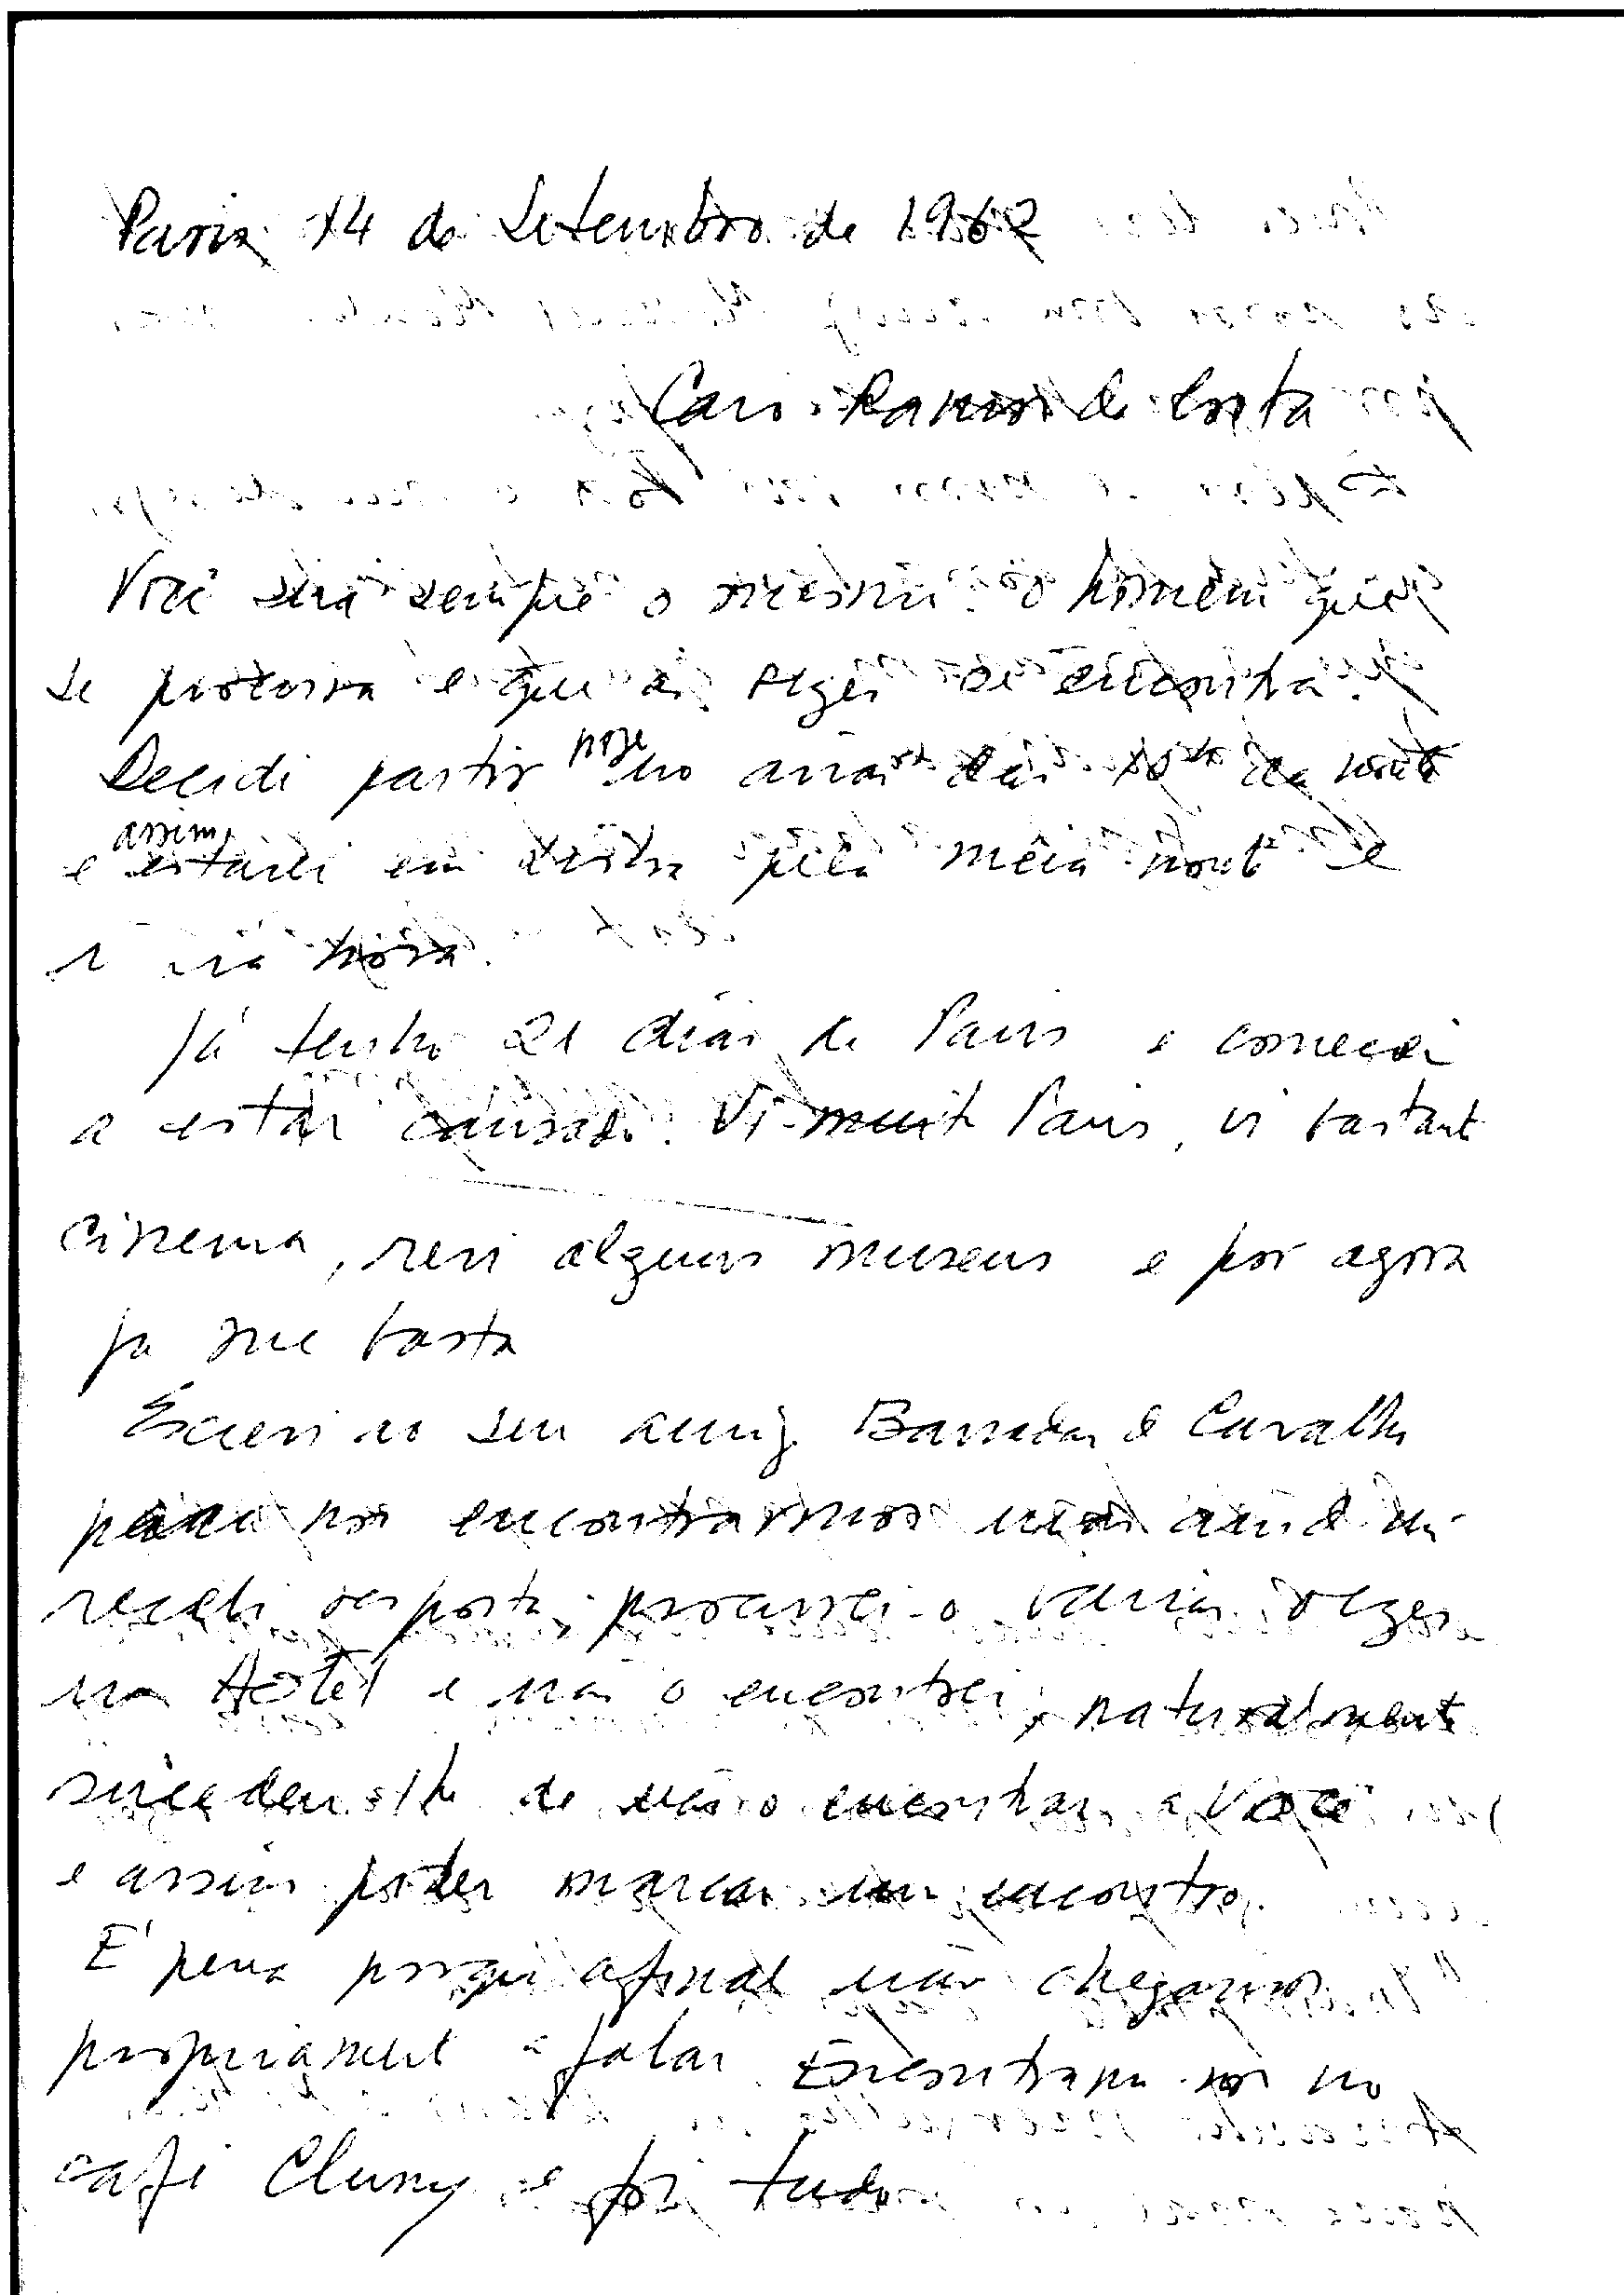 Paris 14 de Setembro de 1962
Caro Ramos da Costa
Você será sempre o mesmo: o homem que
se procura e que às vezes se encontra.
Decidi partir hoje no avião das da noite
e assim estarei em Lisboa pela meia noite e
hora.
Já tenho 21 dias de Paris e comecei
a estar cansado. Vi muito Paris, vi bastante
cinema, revi alguns museus e por agora
já me basta
Escrevi ao seu amigo Barradas de Carvalho
para nos encontrarmos mas ainda não
recebi resposta, procurei-o várias vezes
no Hotel e não o encontrei, naturalmente
sucedeu-lhe de não o encontrar a Você
e assim poder marcar um encontro.
É pena porque afinal não chegamos
propriamente a falar. Encontramo-nos no
café Cluny e foi tudo